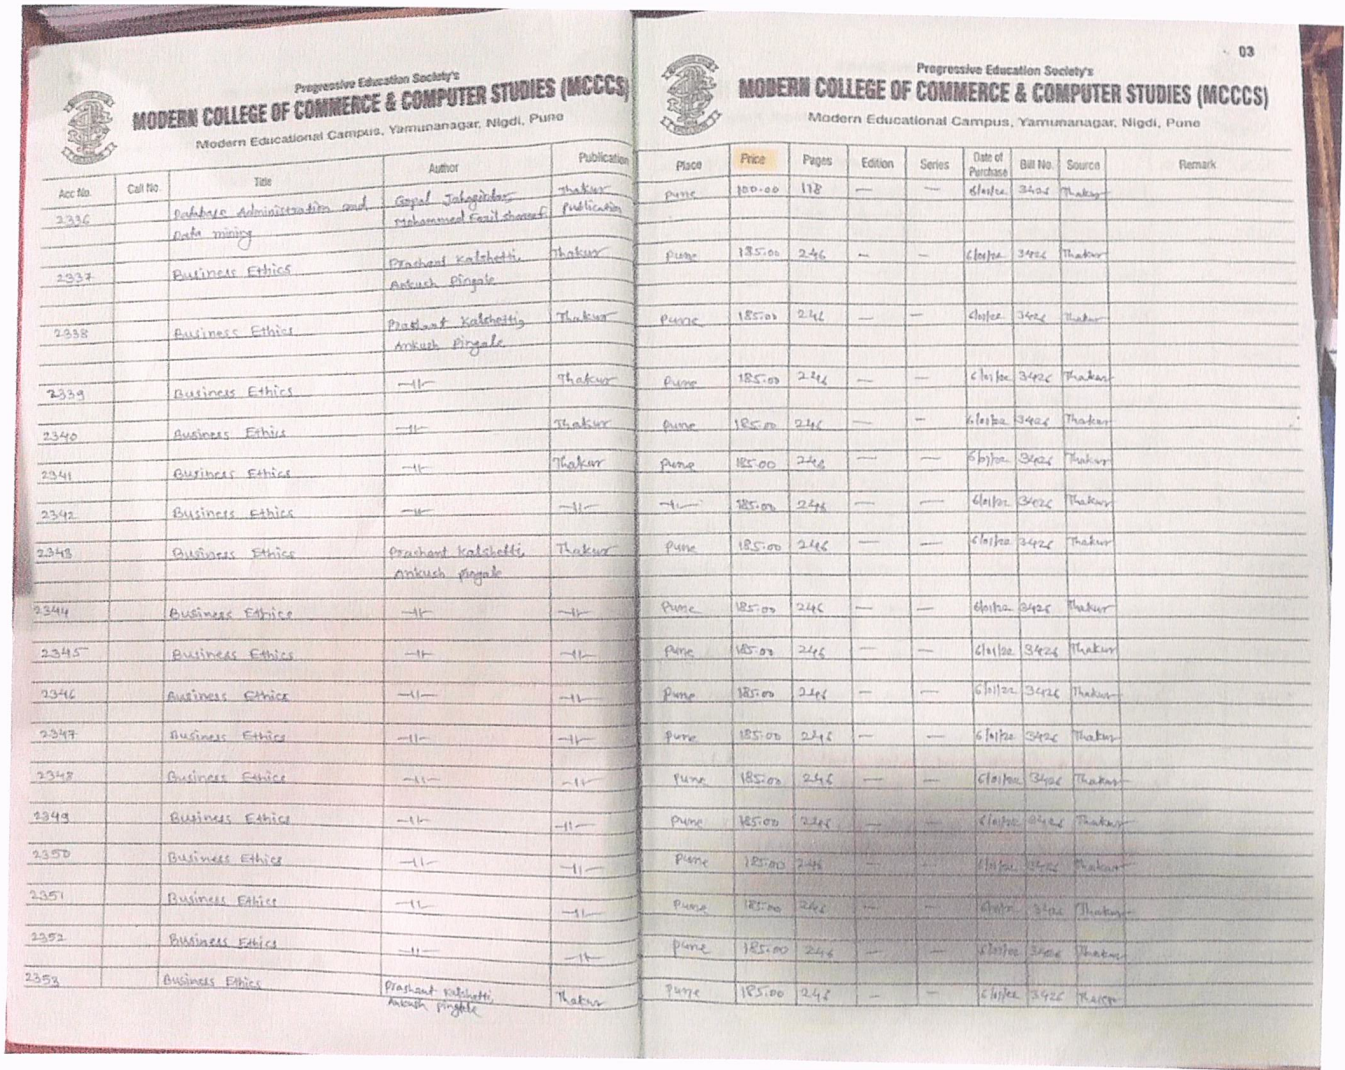 Progressive Education Society's
MODERN COLLEGE OF COMMERCE & COMPUTER STUDIES (MCCCS)
Modern Educational Campus, Yamunanagar, Nigdi, Pune
Acc No. Call No. Title Author Publication
2336 Database Administration and Gopal Jahagirdar, Thakur
Data mining Mohammed publication
2337 Business Ethics Prashant Kalshetti, Thakur
Ankush Pingale
2338 Business Ethics Prashant Kalshetti, Thakur
Ankush Pingale
2339 Business Ethics —11— Thakur
2340 Business Ethics —11— Thakur
2341 Business Ethics —11— Thakur
2342 Business Ethics —11— —11—
2343 Business Ethics Prashant Kalshetti, Thakur
Ankush pingale
2344 Business Ethics —11— —11—
2345 Business Ethics —11— —11—
2346 Business Ethics —11— —11—
2347 Business Ethics —11— —11—
2348 Business Ethics —11— —11—
2349 Business Ethics —11— —11—
2350 Business Ethics —11— —11—
2351 Business Ethics —11— —11—
2352 Business Ethics —11— —11—
2353 Business Ethics Prashant Kalshetti, Thakur
Ankush Pingale
03
Progressive Education Society's
MODERN COLLEGE OF COMMERCE & COMPUTER STUDIES (MCCCS)
Modern Educational Campus, Yamunanagar, Nigdi, Pune
Place Price Pages Edition Series Date of Purchase Bill No. Source Remark
Pune 100.00 118 — — 6/01/22 3426 Thakur
Pune 185.00 246 — — 6/01/22 3426 Thakur
Pune 185.00 246 — — 6/01/22 3426 Thakur
Pune 185.00 246 — — 6/01/22 3426 Thakur
Pune 185.00 246 — — 6/01/22 3426 Thakur
Pune 185.00 246 — — 6/01/22 3426 Thakur
—11— 185.00 246 — — 6/01/22 3426 Thakur
Pune 185.00 246 — — 6/01/22 3426 Thakur
Pune 185.00 246 — — 6/01/22 3426 Thakur
Pune 185.00 246 — — 6/01/22 3426 Thakur
Pune 185.00 246 — — 6/01/22 3426 Thakur
Pune 185.00 246 — — 6/01/22 3426 Thakur
Pune 185.00 246 — — 6/01/22 3426 Thakur
Pune 185.00 246 — — 6/01/22 3426 Thakur
Pune 185.00 246 — — 6/01/22 3426 Thakur
Pune 185.00 246 — — 3426 Thakur
Pune 185.00 246 — — 6/01/22 3426 Thakur
Pune 185.00 246 — — 6/01/22 3426 Thakur